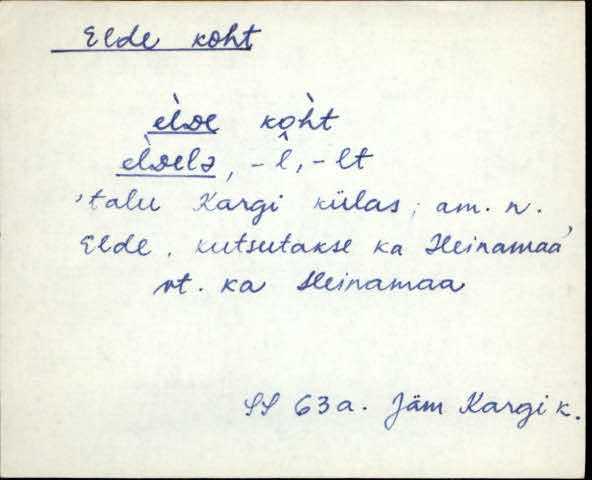 Elde koht
èlᴅe kòht
èlᴅelə, -l̂, -lt
'talu Kargi külas; am. n.
Elde, kutsutakse ka Heinamaa'
vt. ka Heinamaa
SS 63a. Jäm Kargi k.